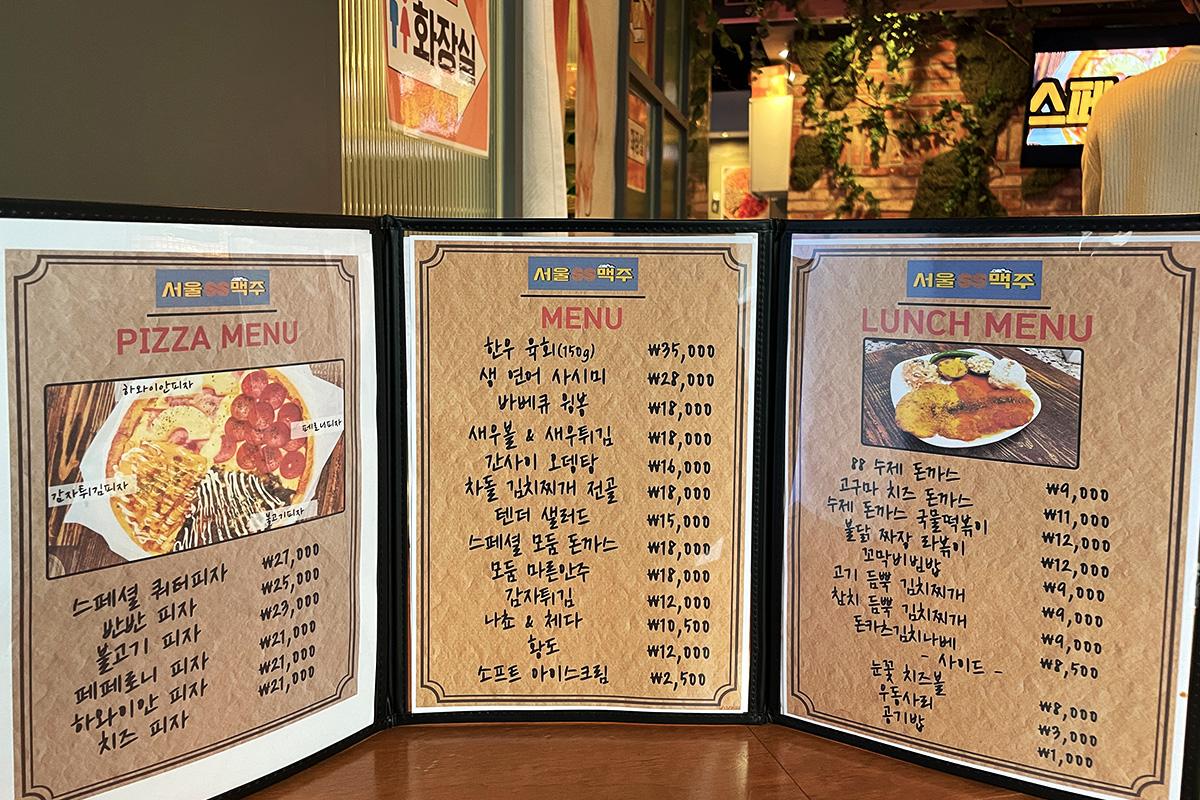 화장실
스페
서울88맥주
PIZZA MENU
하와이안피자
페로니피자
감자튀김피자
불고기피자
스페셜 쿼터피자 ₩27,000
반반 피자 ₩25,000
불고기 피자 ₩23,000
페페로니 피자 ₩21,000
하와이안 피자 ₩21,000
치즈 피자 ₩21,000
서울88맥주
MENU
한우 육회(150g) ₩35,000
생 연어 사시미 ₩28,000
바베큐 윙봉 ₩18,000
새우볼 & 새우튀김 ₩18,000
간사이 오뎅탕 ₩16,000
차돌 김치찌개 전골 ₩18,000
텐더 샐러드 ₩15,000
스페셜 모듬 돈까스 ₩18,000
모듬 마른안주 ₩18,000
감자튀김 ₩12,000
나쵸 & 체다 ₩10,500
황도 ₩12,000
소프트 아이스크림 ₩2,500
서울88맥주
LUNCH MENU
88 수제 돈까스 ₩9,000
고구마 치즈 돈까스 ₩11,000
수제 돈까스 국물떡볶이 ₩12,000
불닭 짜장 라볶이 ₩12,000
꼬막비빔밥 ₩9,000
고기 듬뿍 김치찌개 ₩9,000
참치 듬뿍 김치찌개 ₩9,000
돈카츠김치나베 ₩8,500
- 사이드 -
눈꽃 치즈볼 ₩8,000
우동사리 ₩3,000
공기밥 ₩1,000